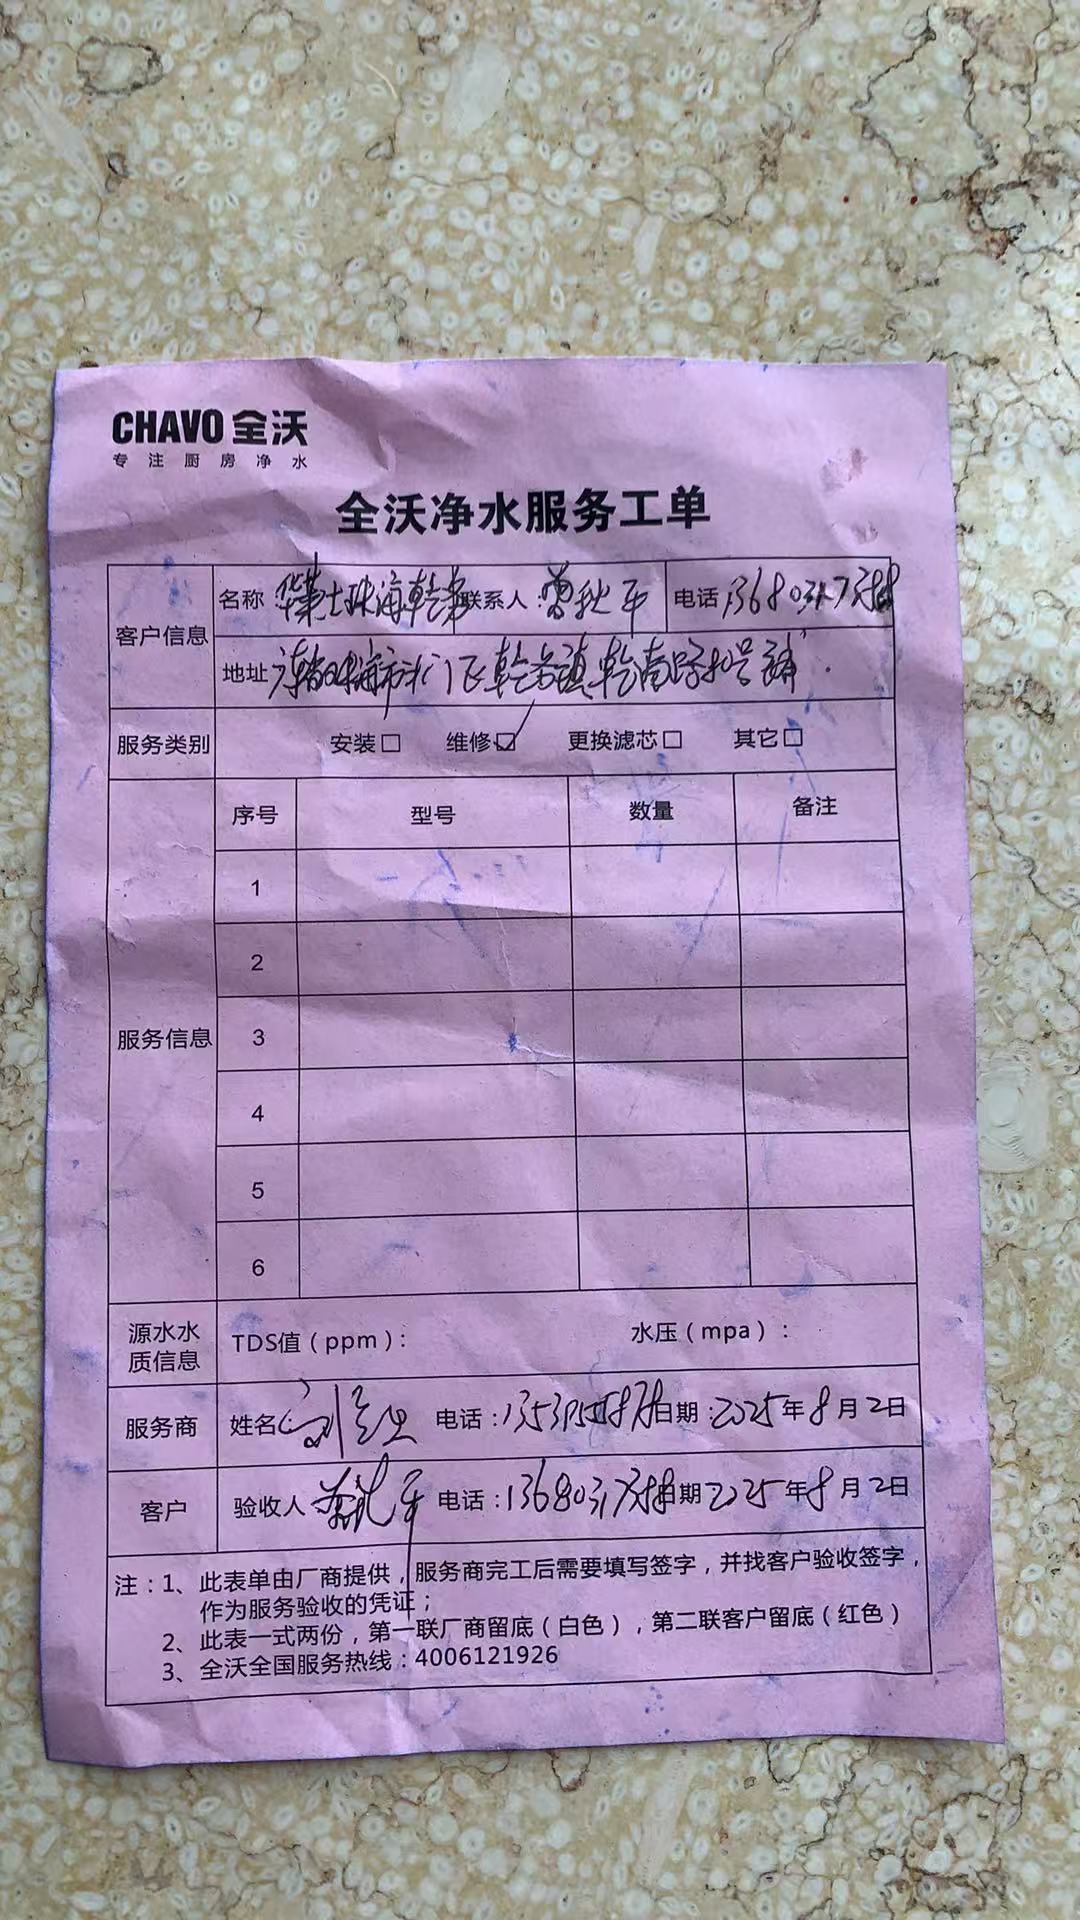 CHAVO 全沃
专注厨房净水
全沃净水服务工单
客户信息 名称 华莱士珠海乾务 联系人：曾秋平 电话
地址 广东省珠海市斗门区乾务镇乾南路 号铺
服务类别 安装□ 维修☑ 更换滤芯□ 其它□
服务信息 序号 型号 数量 备注
1
2
3
4
5
6
源水水质信息 TDS值（ppm）： 水压（mpa）：
服务商 姓名：刘 电话： 日期：2025年8月2日
客户 验收人 曾秋平 电话： 日期 2025年8月2日
注：1、此表单由厂商提供，服务商完工后需要填写签字，并找客户验收签字，
作为服务验收的凭证；
2、此表一式两份，第一联厂商留底（白色），第二联客户留底（红色）
3、全沃全国服务热线：4006121926